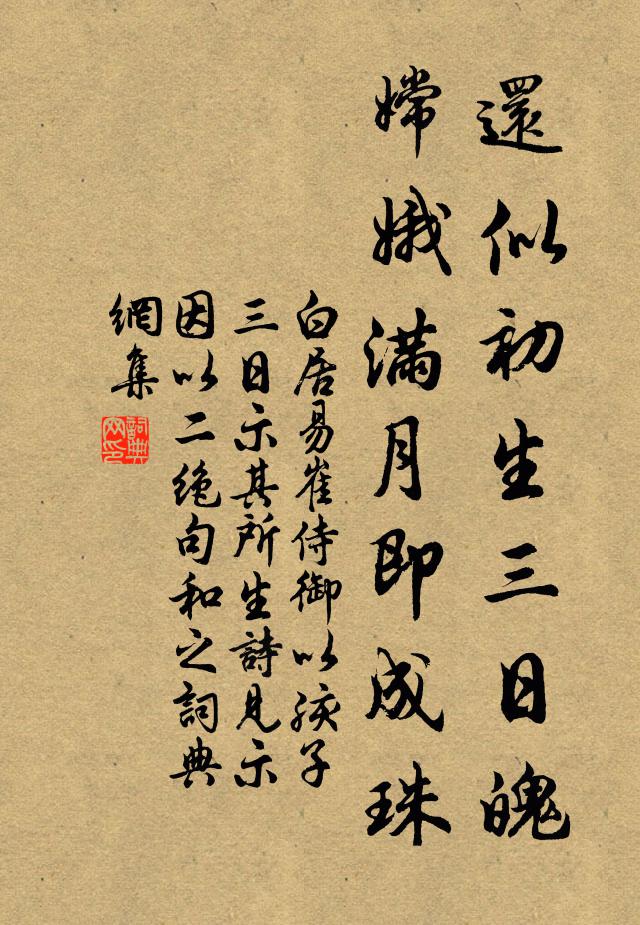 還似初生三日魄
嫦娥滿月即成珠
白居易崔侍御以孩子
三日示其所生詩見示
因以二絶句和之詞典
網集
詞典
网印